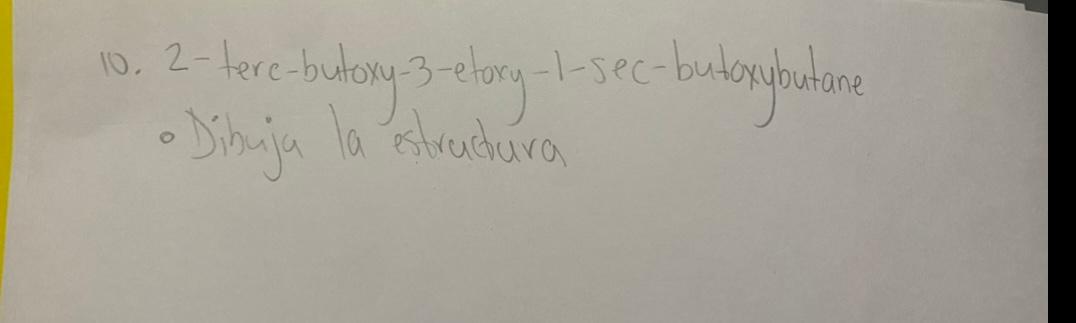 10. 2-terc-butoxy-3-etoxy-1-sec-butoxybutane
• Dibuja la estructura